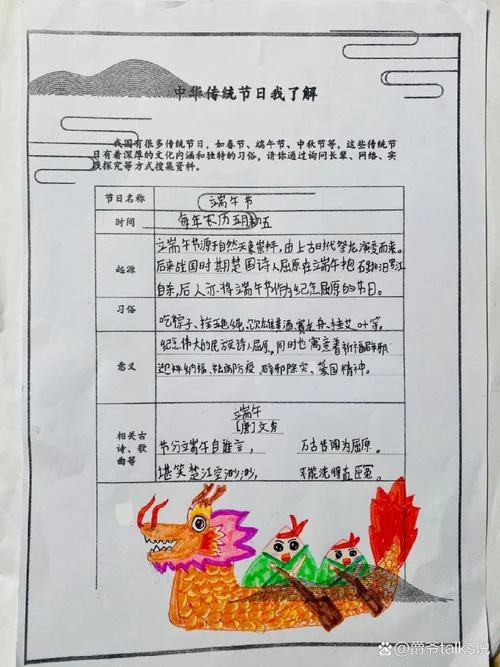 中华传统节日我了解
我国有很多传统节日，如春节、端午节、中秋节等，这些传统节
日有着深厚的文化内涵和独特的习俗，请你通过询问长辈、网络、实
践探究等方式搜集资料。
节日名称
端午节
时间
每年农历五月初五
起源
端午节源于自然天象崇拜，由上古时代祭龙演变而来。
后来战国时期楚国诗人屈原在端午抱石跳汨罗江
自杀，后人亦将端午节作为纪念屈原的节日。
习俗
吃粽子、挂五色绳、饮雄黄酒、赛龙舟、挂艾叶等。
意义
纪念伟大的民族诗人屈原，同时也寓意着祈福辟邪
迎祥纳福、祛病防疫、辟邪除灾、爱国精神。
相关古
诗、歌
曲等
端午
[唐]文秀
节分端午自谁言， 万古传闻为屈原。
堪笑楚江空渺渺， 不能洗得直臣冤。
爵爷talks说